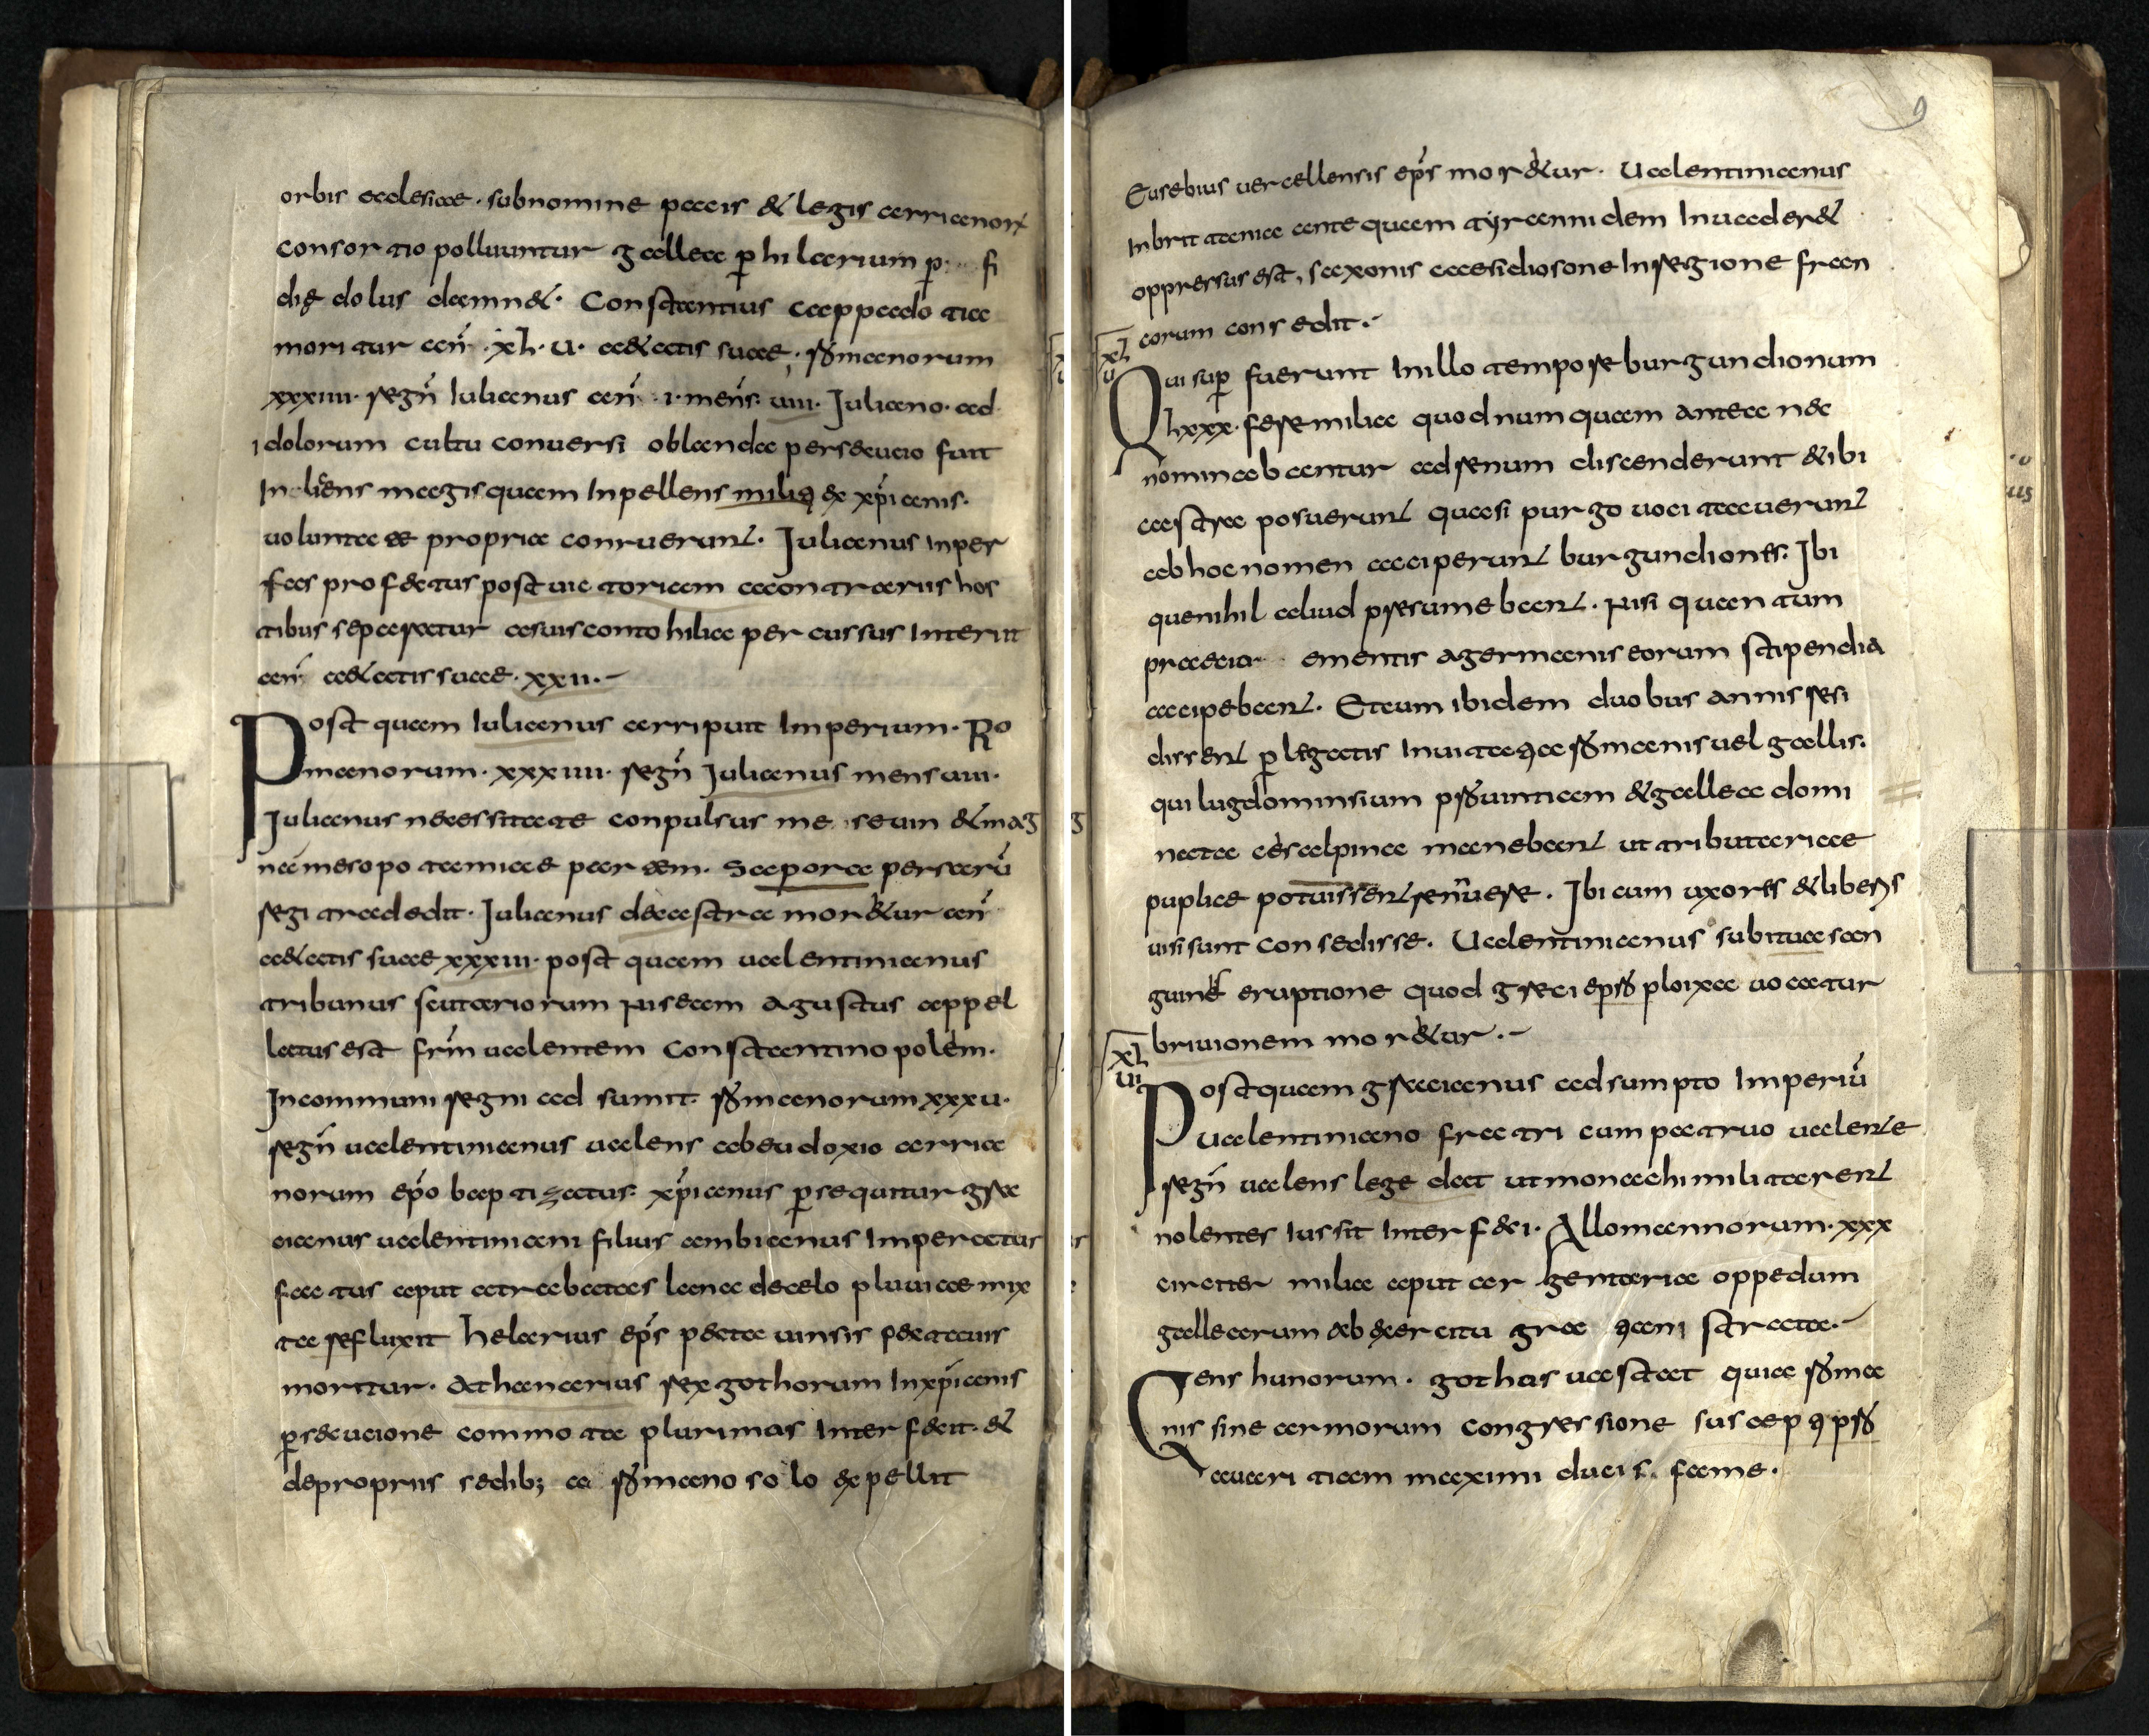 orbis ecclesiae. subnomine pacis & legis arrianorꝝ
consortio polluuntur gallea ꝑ hilarium p fi
dię dolus damn&. Constantius aappado tia
moritur añ. xl. u. a&actis suae. rōmanorum
xxxiiii. regñ Iulianus añ. i. meñs. uiii. Iuliano. ad
idolorum cultu conuersi oblanda persecucio fuit
Incliens magis quam Inpellens milię ex xp̄ianis.
uolunta te propria conruerunt. Iulianus Inper
fas profectus post uictoriam acontrariis hos
tibus separatur asuis contohilia percussus Interiit
añ a&actis suae. xxii.
Post quam Iulianus arripuit Imperium. Ro
manorum. xxxiiii. regñ Iulianus mens uiii.
Iulianus necessitate conpulsus me seum & mag
na mesopotamiae partem. Sapora persarū
regi tradedit. Iulianus dacastra mor&ur añ
a&actis suae xxxiii. post quam ualentinianus
tribunus scutariorum riseam agustus appel
latus est fr̄m ualentem Constantinopolem.
Incommuni regni ad sumit. rōmanorum xxxu.
regñ ualentinianus ualens abeudoxio arria
norum ep̄o baptizatus. xp̄ianus ꝑsequitur gra
cianus ualentiniani filius ambianus Imperatur
factus aput atrabatas lana decelo pluuiae mix
ta refluxit helarius ep̄s pectauinsis pectauis
moritur. Athanarius rex gothorum Inxp̄ianis
ꝑsecucione commota plurimas Interfecit. &
depropriis sedib; a rōmano solo expellit
9
Eusebius uercellensis ep̄s mor&ur. Ualentinianus
Inbrittania antequam tyrannidem Inuader&
oppressus est, saxonis caesidiosone Inregione fran
corum consedit.
xl
u
Qui suꝑ fuerunt Inillo tempore burgundionum
lxxx. fere milia quod numquam antea nec
nominabantur ad renum discenderunt & ibi
castra posuerunt quasi purgo uocitauerunt
ab hoc nomen acciperunt burgundiones. Ibi
quenihil aliud presumebant. nisi quantum
praecia ementis agermanis eorum stipendia
accipebant. Etcum ibidem duobus annis resi
dissent ꝑ legatis Inuitati a rōmanis uel gallis.
qui lugdominsium prōuintiam & gallea domi
nata cesalpina manebant ut tributariae
puplice potuissent renūere. Ibi cum uxores & liberis
uisi sunt consedisse. Ualentinianus subitua san
guines eruptione quod greci eprō ploixa uocatur
briuionem mor&ur.
xl
ui
Postquam gracianus adsumpto Imperiū
Ualentiniano fratri cum patruo ualente
regñ ualens lege dact ut monachi militarent
nolentes iussit Interfeci. Allomannorum. xxx
circiter milia aput argentaria oppedum
gallearum ab exercitu gra ciani strata.
Gens hunorum. gothas uastat quia rōma
nis sine armorum congressione suscepti prō
auaritiam maximi ducis fame.